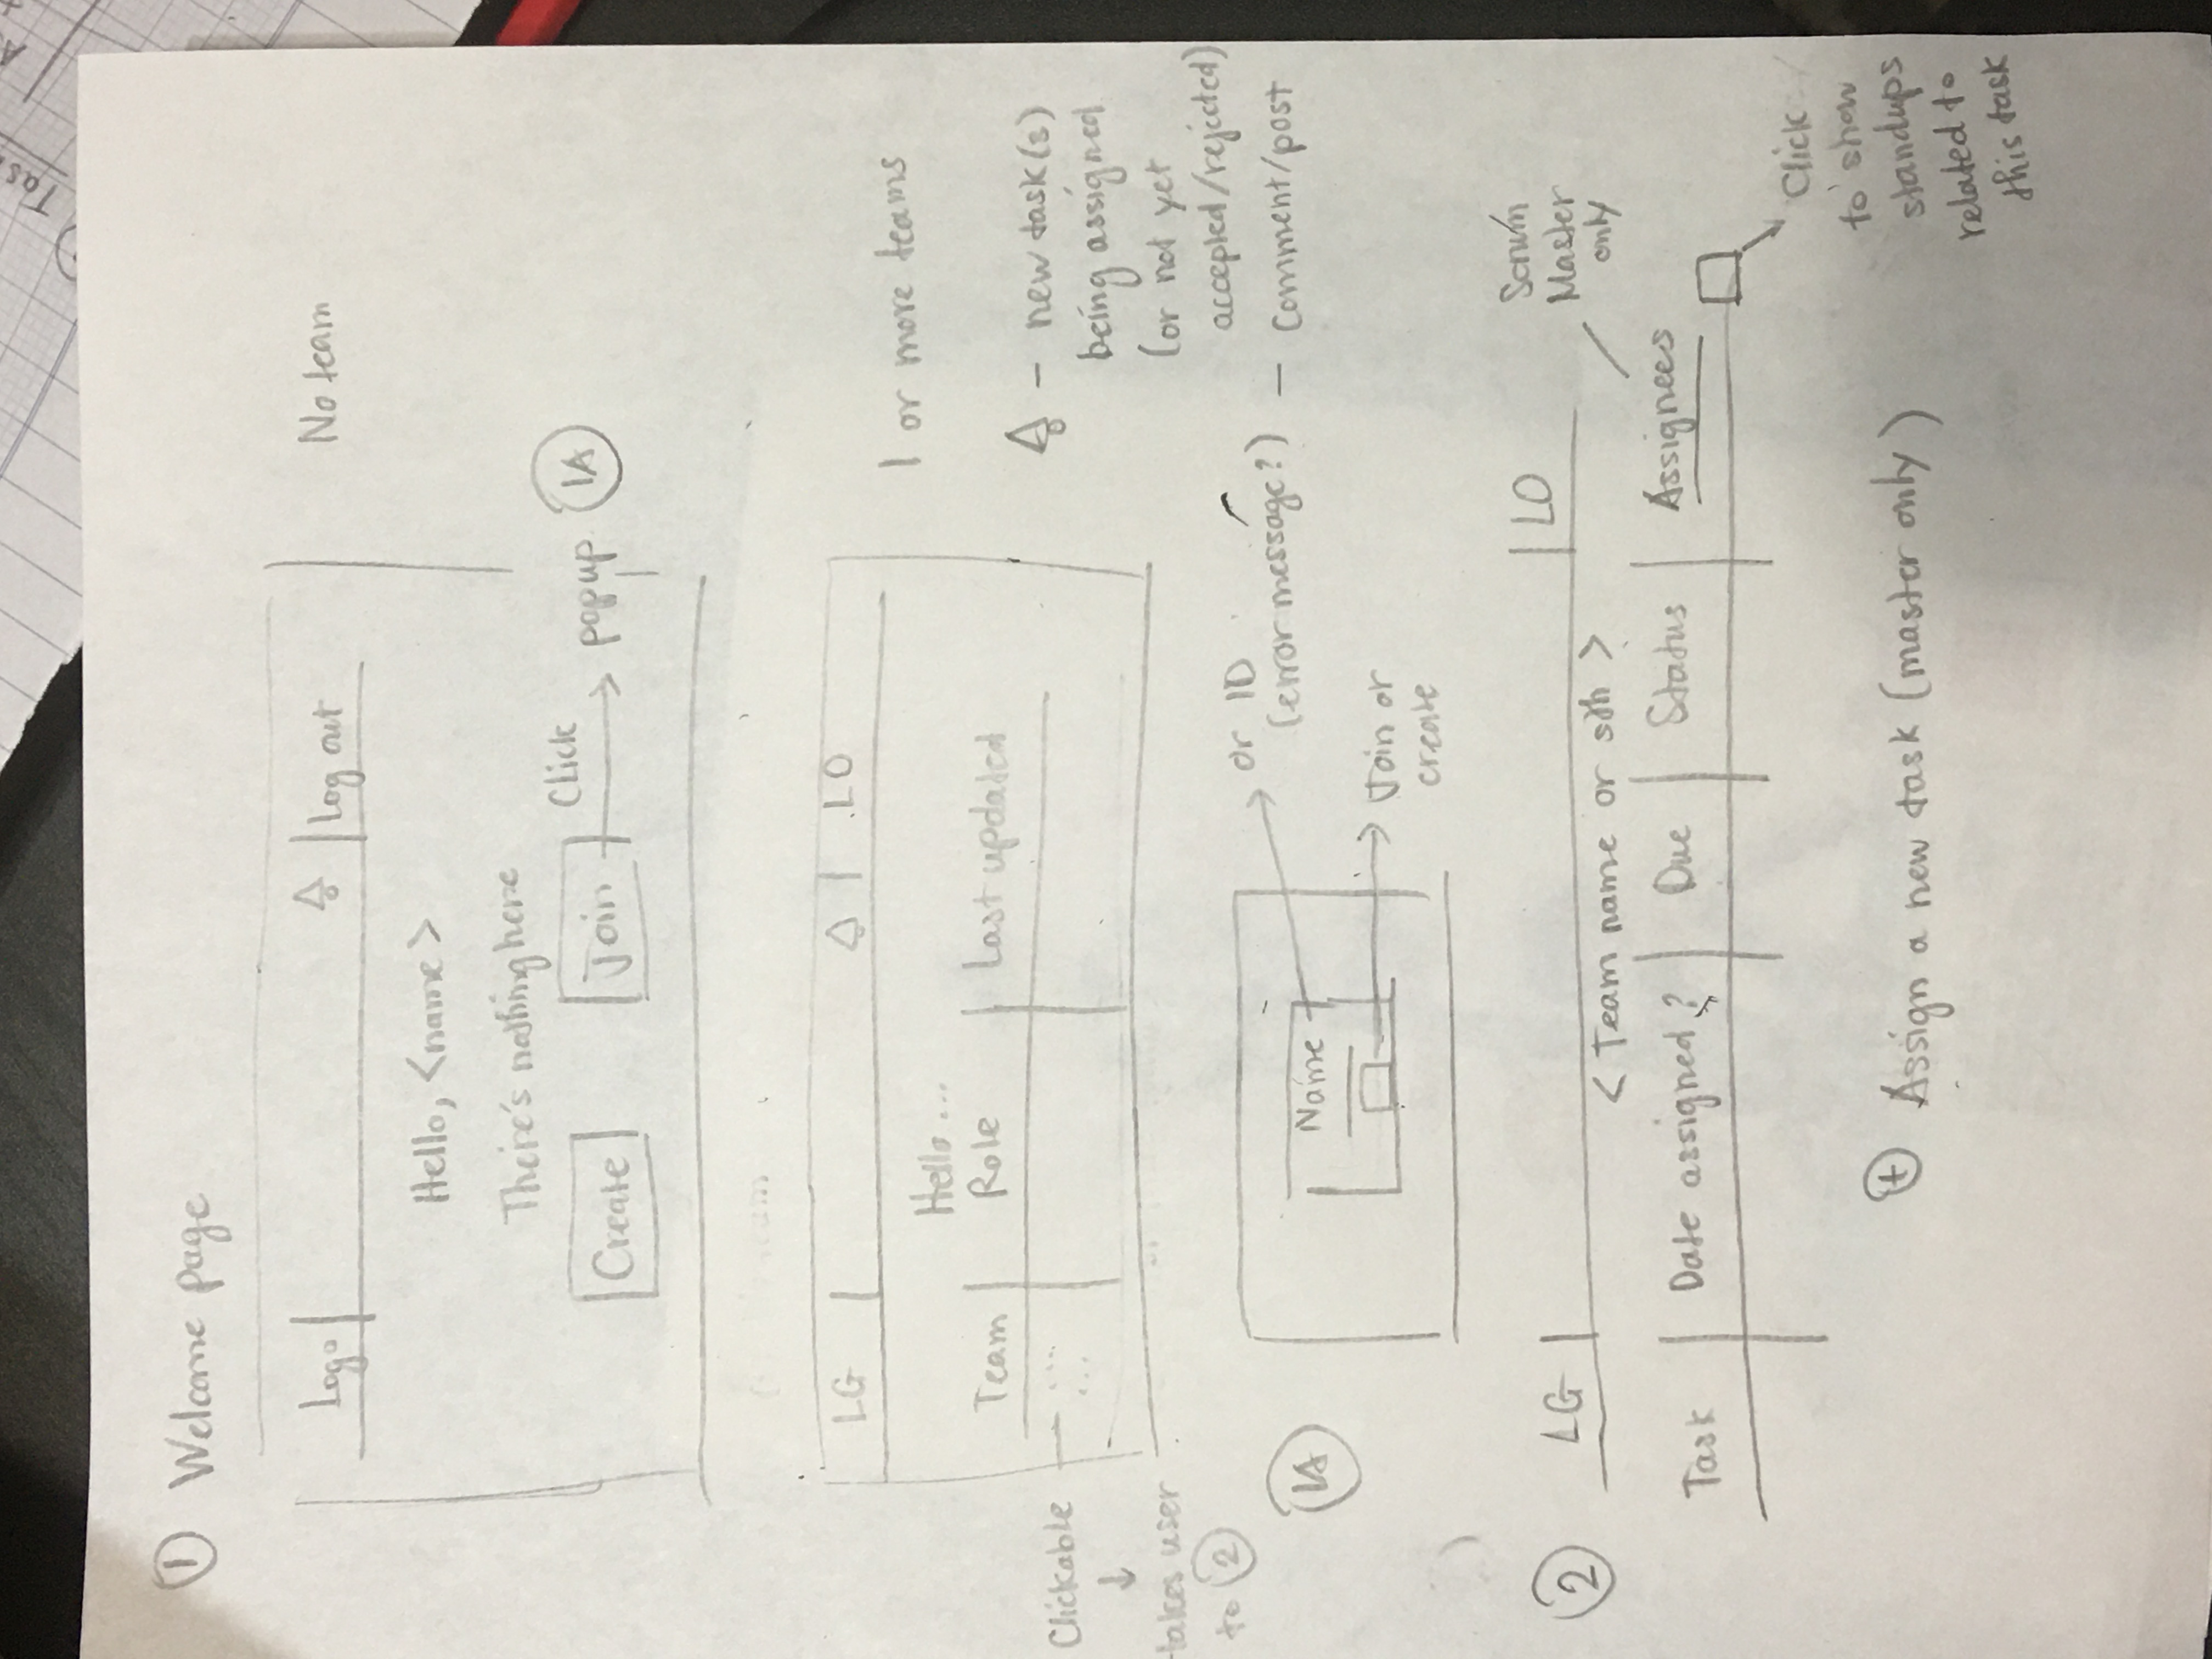 ① Welcome page
Logo | Log out
No team
Hello, <name>
There's nothing here
Create Join Click → popup 1A
LG | | LO
1 or more teams
Hello ...
Team | Role | Last updated
Clickable
↓
takes user
to ②
– new task(s)
being assigned
(or not yet
accepted/rejected)
– comment/post
1A
Name
or ID
(error message?)
Join or
create
② LG | | LO
Scrum
Master
only
< Team name or sth >
Task | Date assigned? | Due | Status | Assignees
Click
to show
standups
related to
this task
⊕ Assign a new task (master only)
Tas